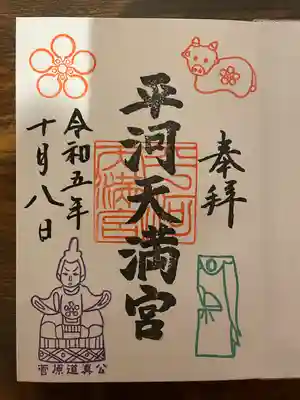 奉拝
平河天満宮
令和五年
十月八日
菅原道真公
平河
天満宮